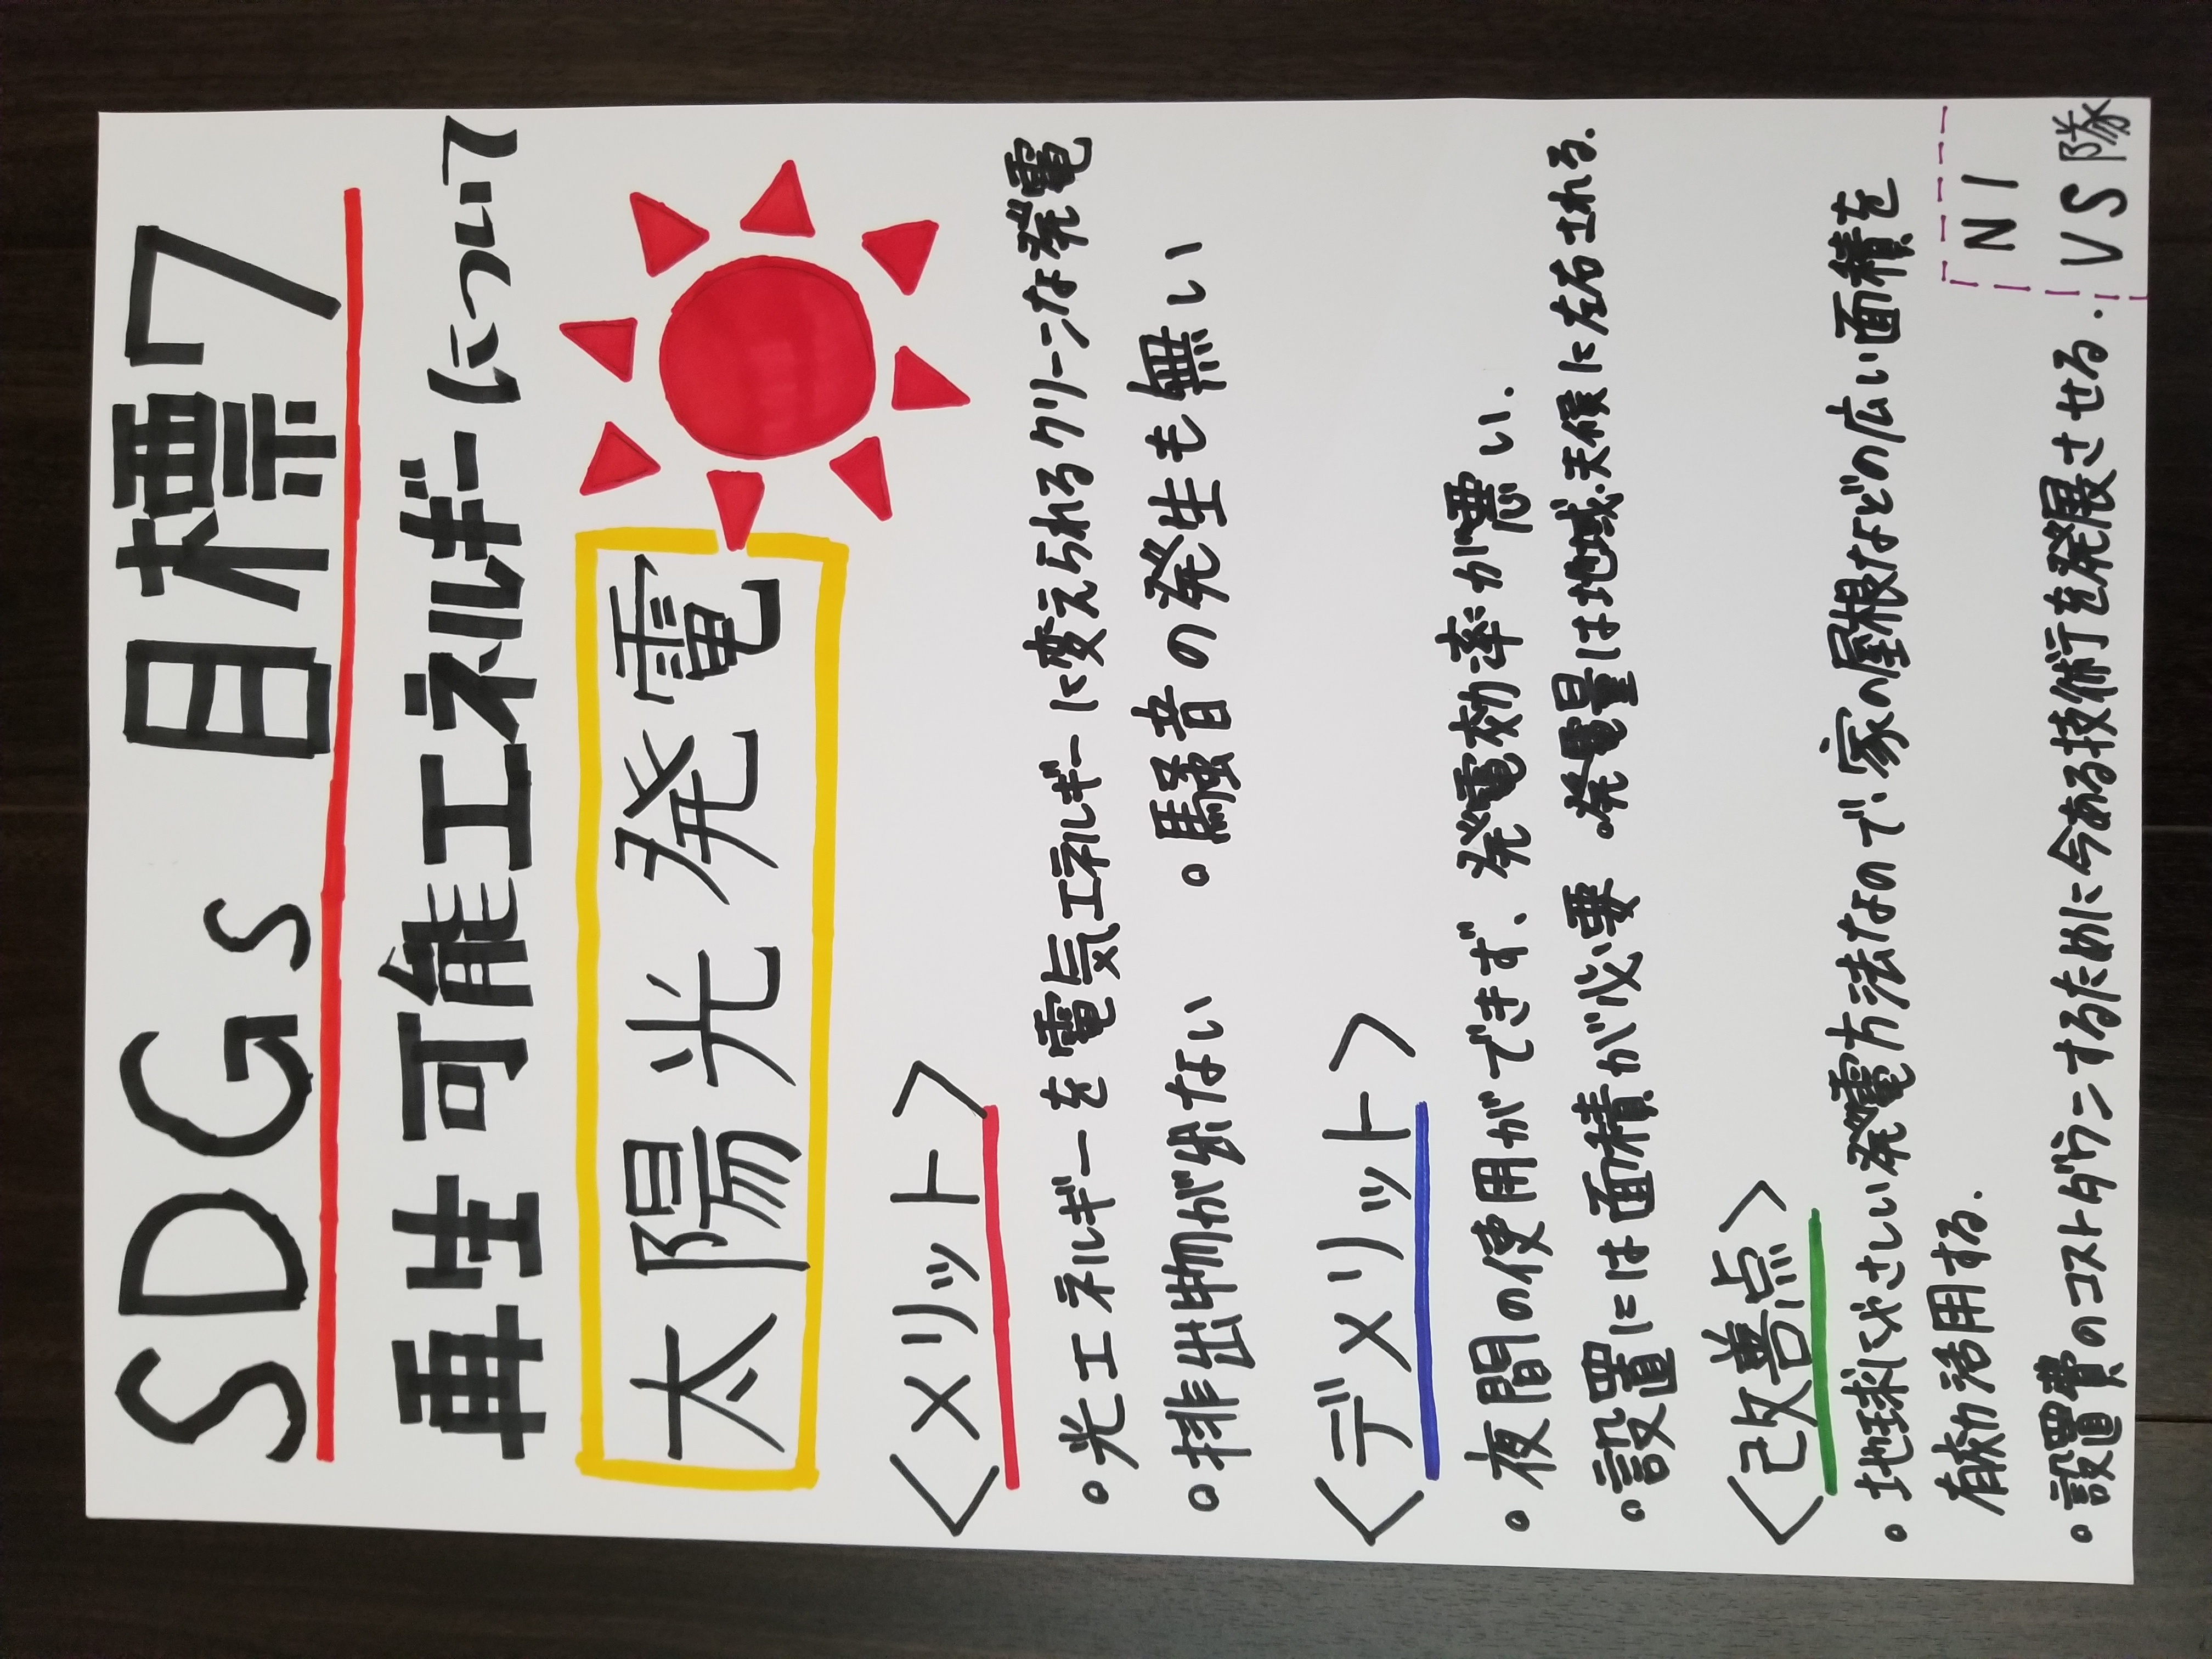 SDGs 目標7
再生可能エネルギーについて
太陽光発電
<メリット>
。光エネルギーを電気エネルギーに変えられるクリーンな発電
。排出物が出ない 。騒音の発生も無い
<デメリット>
。夜間の使用ができず、発電効率が悪い.
。設置には面積が必要 。発電量は地域・天候に左右される.
<改善点>
。地球にやさしい発電方法なので、家の屋根などの広い面積を
有効活用する.
。設置費のコストダウンするために今ある技術を発展させる.
N1
VS隊